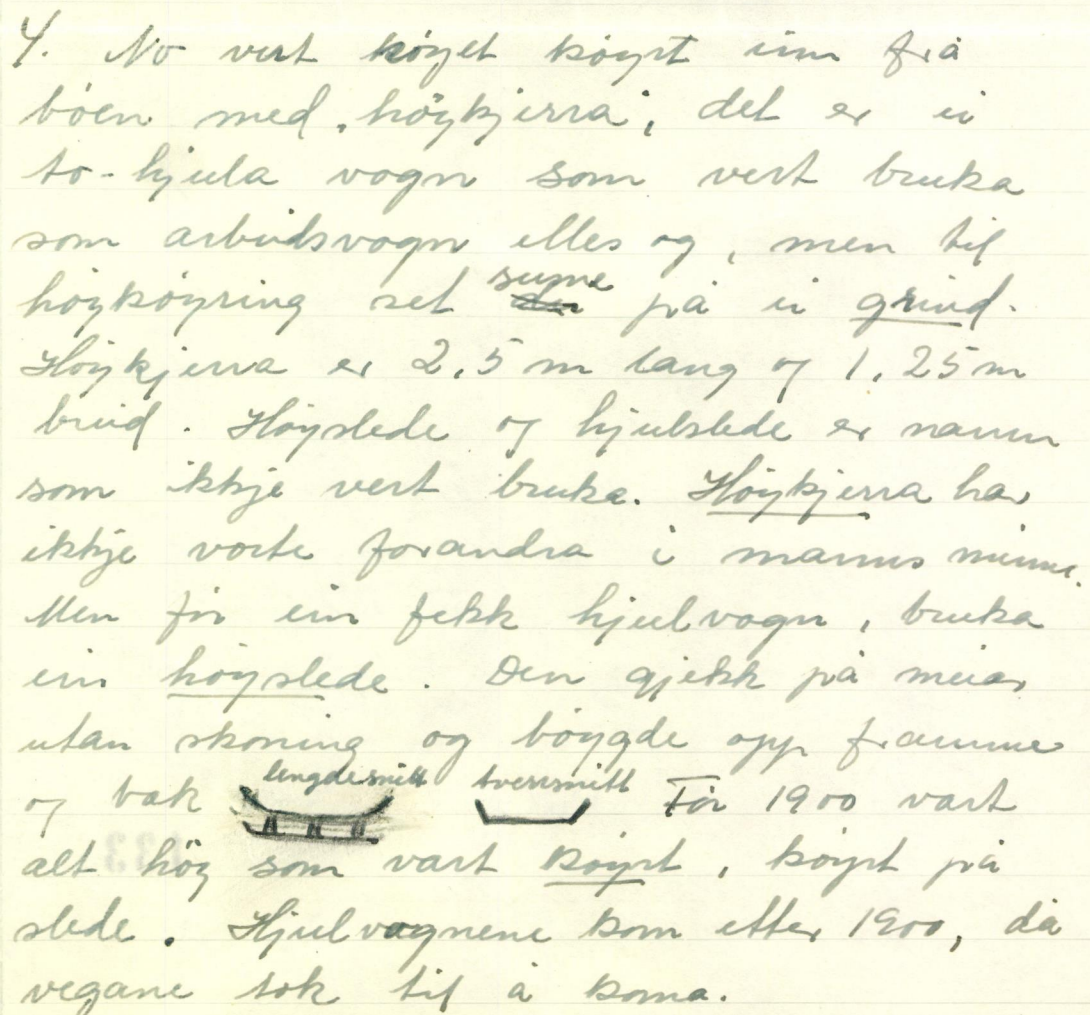 4. No vert høyet køyrt inn frå
bøen med „høykjerra", det er ei
to-hjula vogn som vert bruka
som arbeidsvogn elles og, men til
høykøyring set sume på ei grind.
Høykjerra er 2,5 m lang og 1,25 m
breid. Høyslede og hjulslede er namn
som ikkje vert bruka. Høykjerra har
ikkje vorte forandra i manns minne.
Men før ein fekk hjulvogn, bruka
ein høyslede. Den gjekk på meiar
utan skoning og bøygde opp framme
lengdesnitt tverrsnitt
og bak Før 1900 vart
alt høy som vart køyrt, køyrt på
slede. Hjulvognene kom etter 1900, då
vegane tok til å koma.